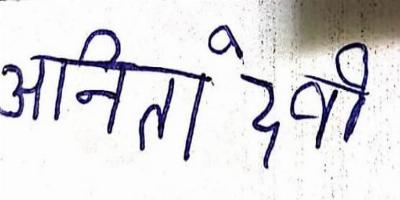 अनिता देवी